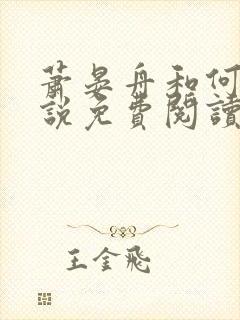 蕭晏舟和何
說免費閱讀
王金飛